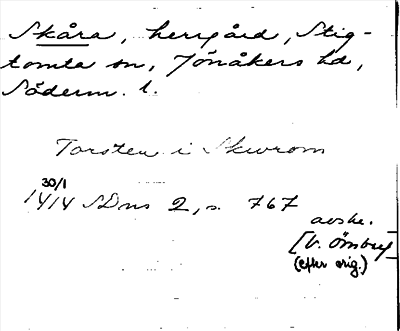 Skåra, herrgård, Stig-
tomta sn, Jönåkers hd,
Söderm. l.
Torsten i Skurom
30/1
1414 SDns 2, s. 767
avskr.
[V. Örnberg
(efter orig.)